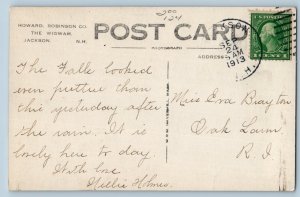 HOWARD, ROBINSON CO.
THE WIGWAM,
JACKSON, N.H.
200
POST CARD
PHOTOGRAPHIC
ADDRESS
SE
24
AM
1913
H.
The Falls looked
even prettier than
this yesterday after
the rain. It is
lovely here to day.
With love
Nellie Holmes.
Miss Eva Brayton
Oak Lawn
R. I